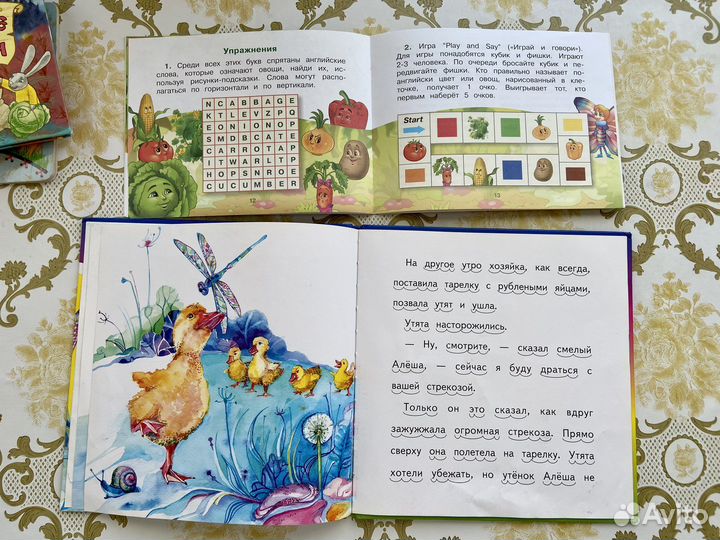 Упражнения
1. Среди всех этих букв спрятаны английские
слова, которые означают овощи, найди их, ис-
пользуя рисунки-подсказки. Слова могут распо-
лагаться по горизонтали и по вертикали.
K C A B B A G E
E O N I O N O P
S M D B C A T E
C A R R O T A P
I T W A R L T P
C U C U M B E R
12
2. Игра "Play and Say" («Играй и говори»).
Для игры понадобятся кубик и фишки. Играют
2-3 человека. По очереди бросайте кубик и пе-
редвигайте фишки. Кто правильно называет по-
английски цвет или овощ, нарисованный в кле-
точке, получает 1 очко. Выигрывает тот, кто
первым наберёт 5 очков.
Start
13
На другое утро хозяйка, как всегда,
поставила тарелку с рублеными яйцами,
позвала утят и ушла.
Утята насторожились.
— Ну, смотрите, — сказал смелый
Алёша, — сейчас я буду драться с
вашей стрекозой.
Только он это сказал, как вдруг
зажужжала огромная стрекоза. Прямо
сверху она полетела на тарелку. Утята
хотели убежать, но утёнок Алёша не
Avito